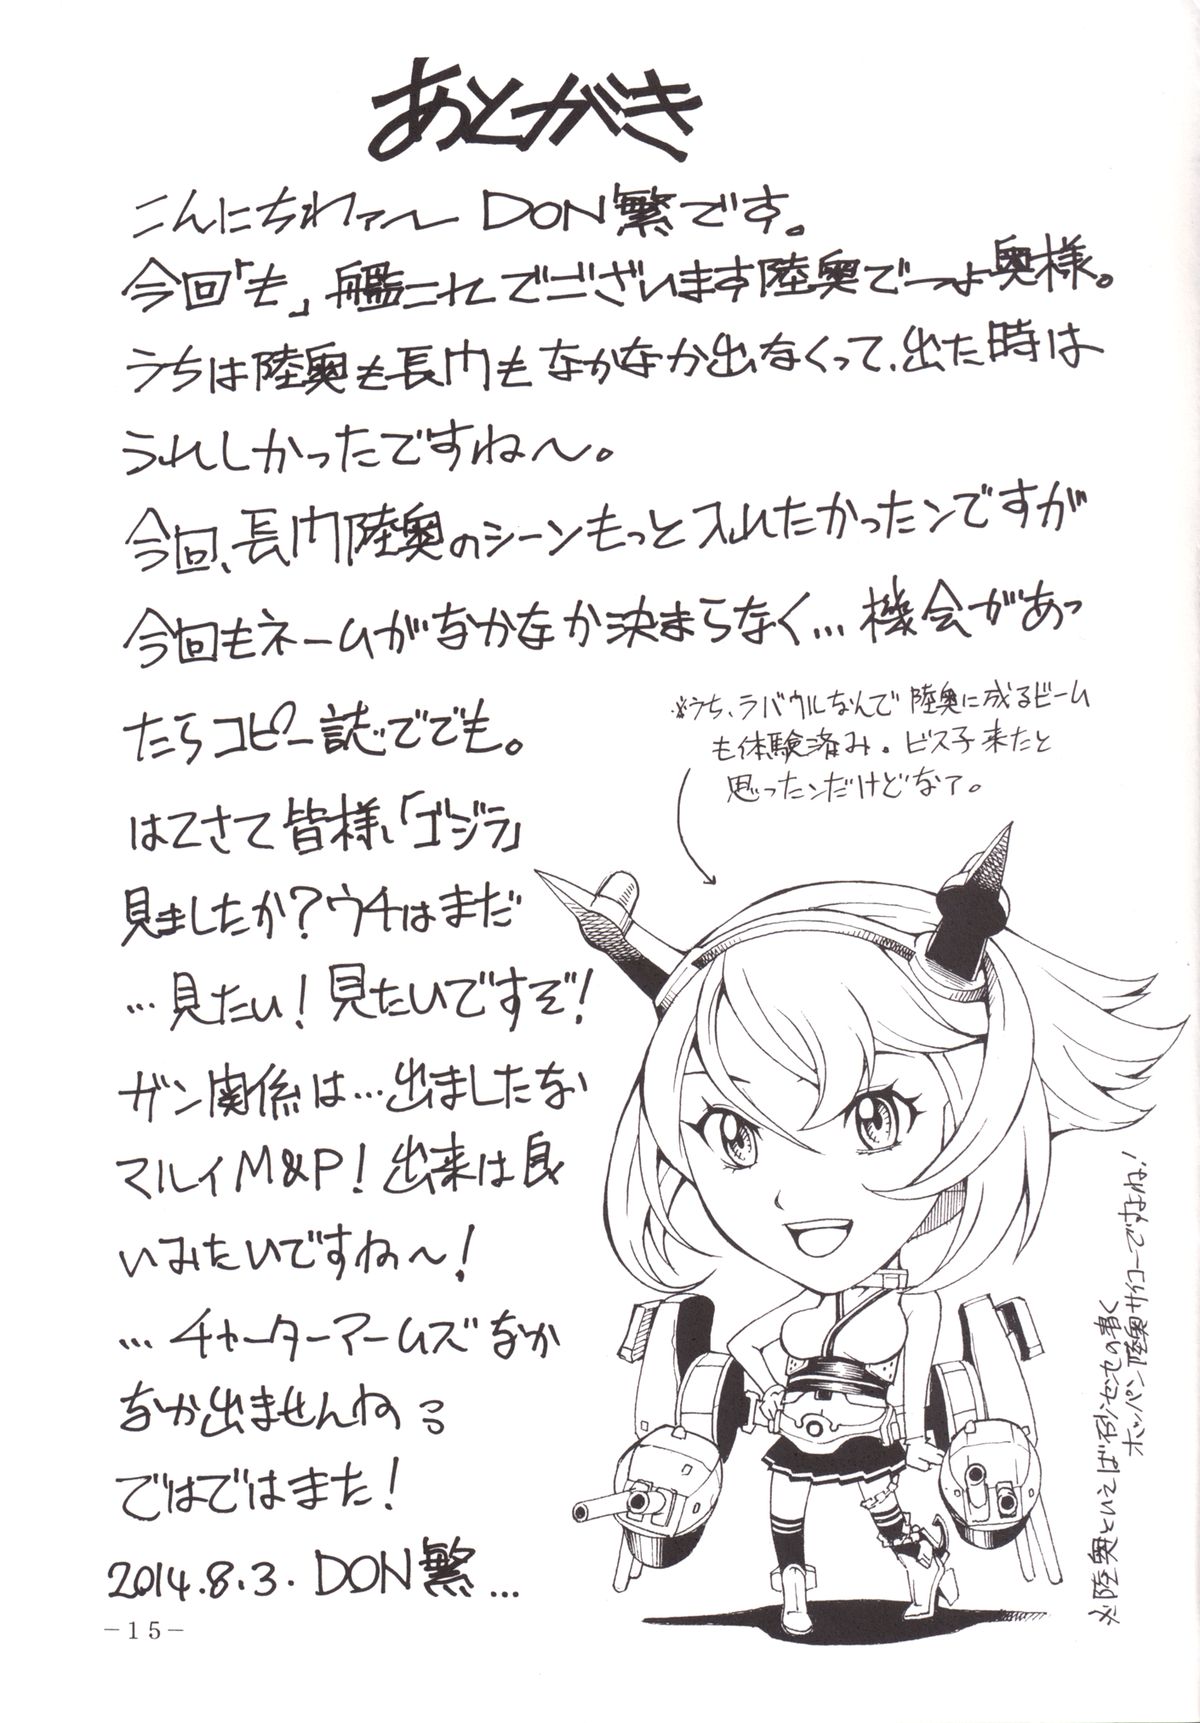 あとがき
こんにちわァ〜 DON繁です。
今回「も」艦これでございます陸奥でつよ奥様。
うちは陸奥も長門もなかなか出なくって、出た時は
うれしかったですね〜。
今回、長門陸奥のシーンもっと入れたかったンですが
今回もネームがなかなか決まらなく…機会があっ
たらコピー誌ででも。
※うち、ラバウルなんで陸奥に成るビーム
も体験済み。ビス子来たと
思ったンだけどなァ。
はてさて皆様、「ゴジラ」
見ましたか?ウチはまだ
…見たい!見たいですぞ!
ガン関係は…出ましたない
マルイM&P!出来は良
いみたいですね〜!
…チャーターアームズなか
なか出ませんねぇ
ではではまた!
2014.8.3. DON繁…
※陸奥といえば砂センセの書く
ホッパン陸奥サイコーですよね!
-15-